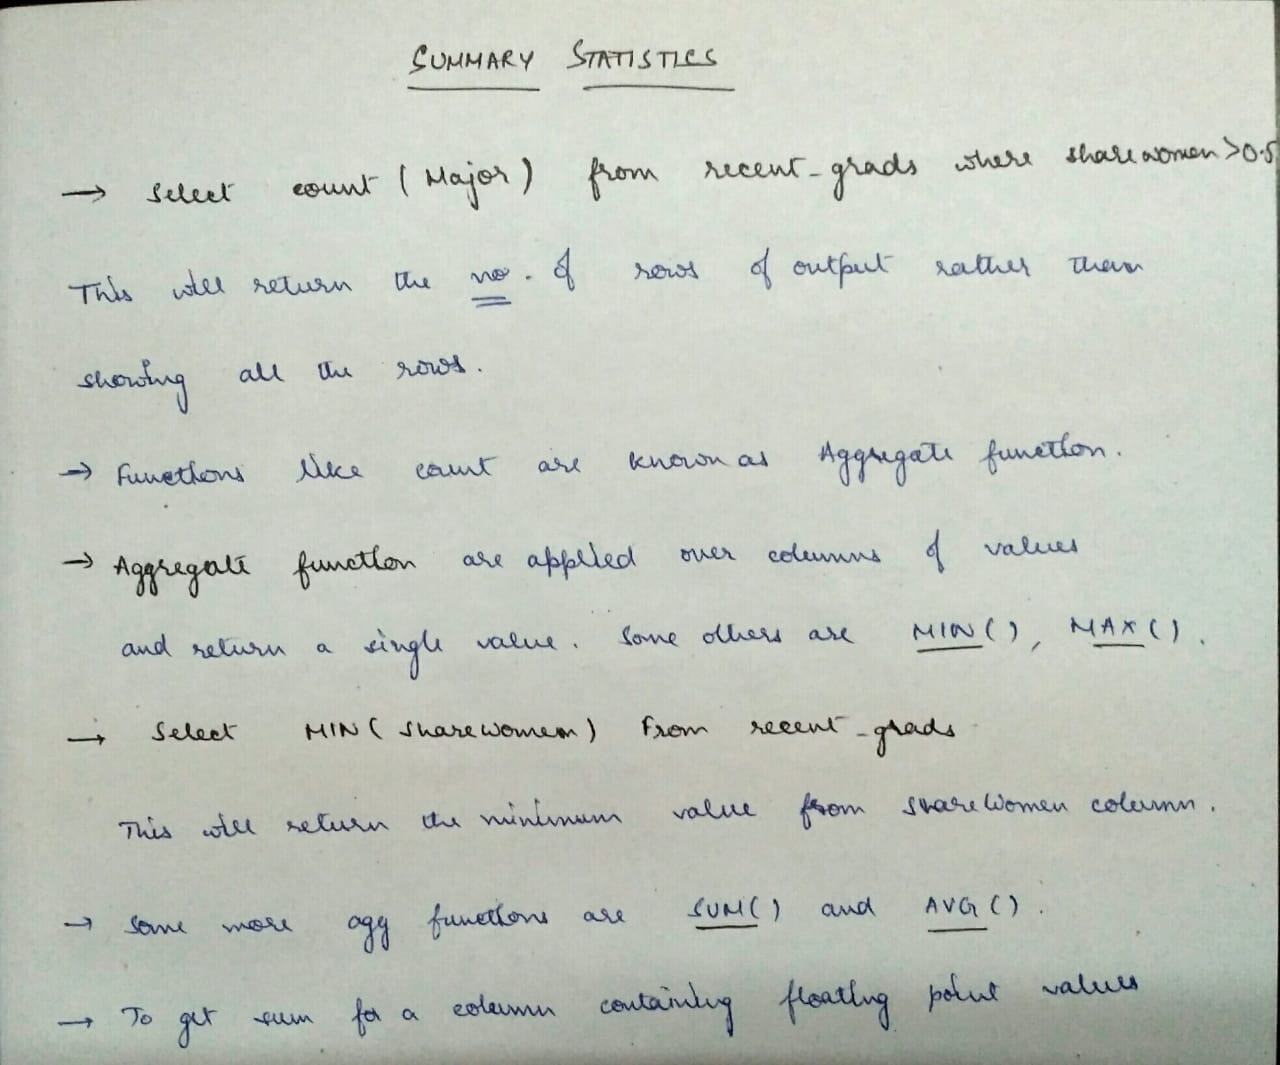 SUMMARY STATISTICS
→ Select count (Major) from recent_grads where sharewomen>0.5
This will return the no. of rows of output rather than
showing all the rows.
→ Functions like count are known as Aggregate function.
→ Aggregate function are applied over columns of values
and return a single value. Some others are MIN(), MAX().
→ Select MIN( Sharewomen) From recent_grads
This will return the minimum value from ShareWomen column.
→ Some more agg functions are SUM() and AVG().
→ To get sum for a column containing floating point values